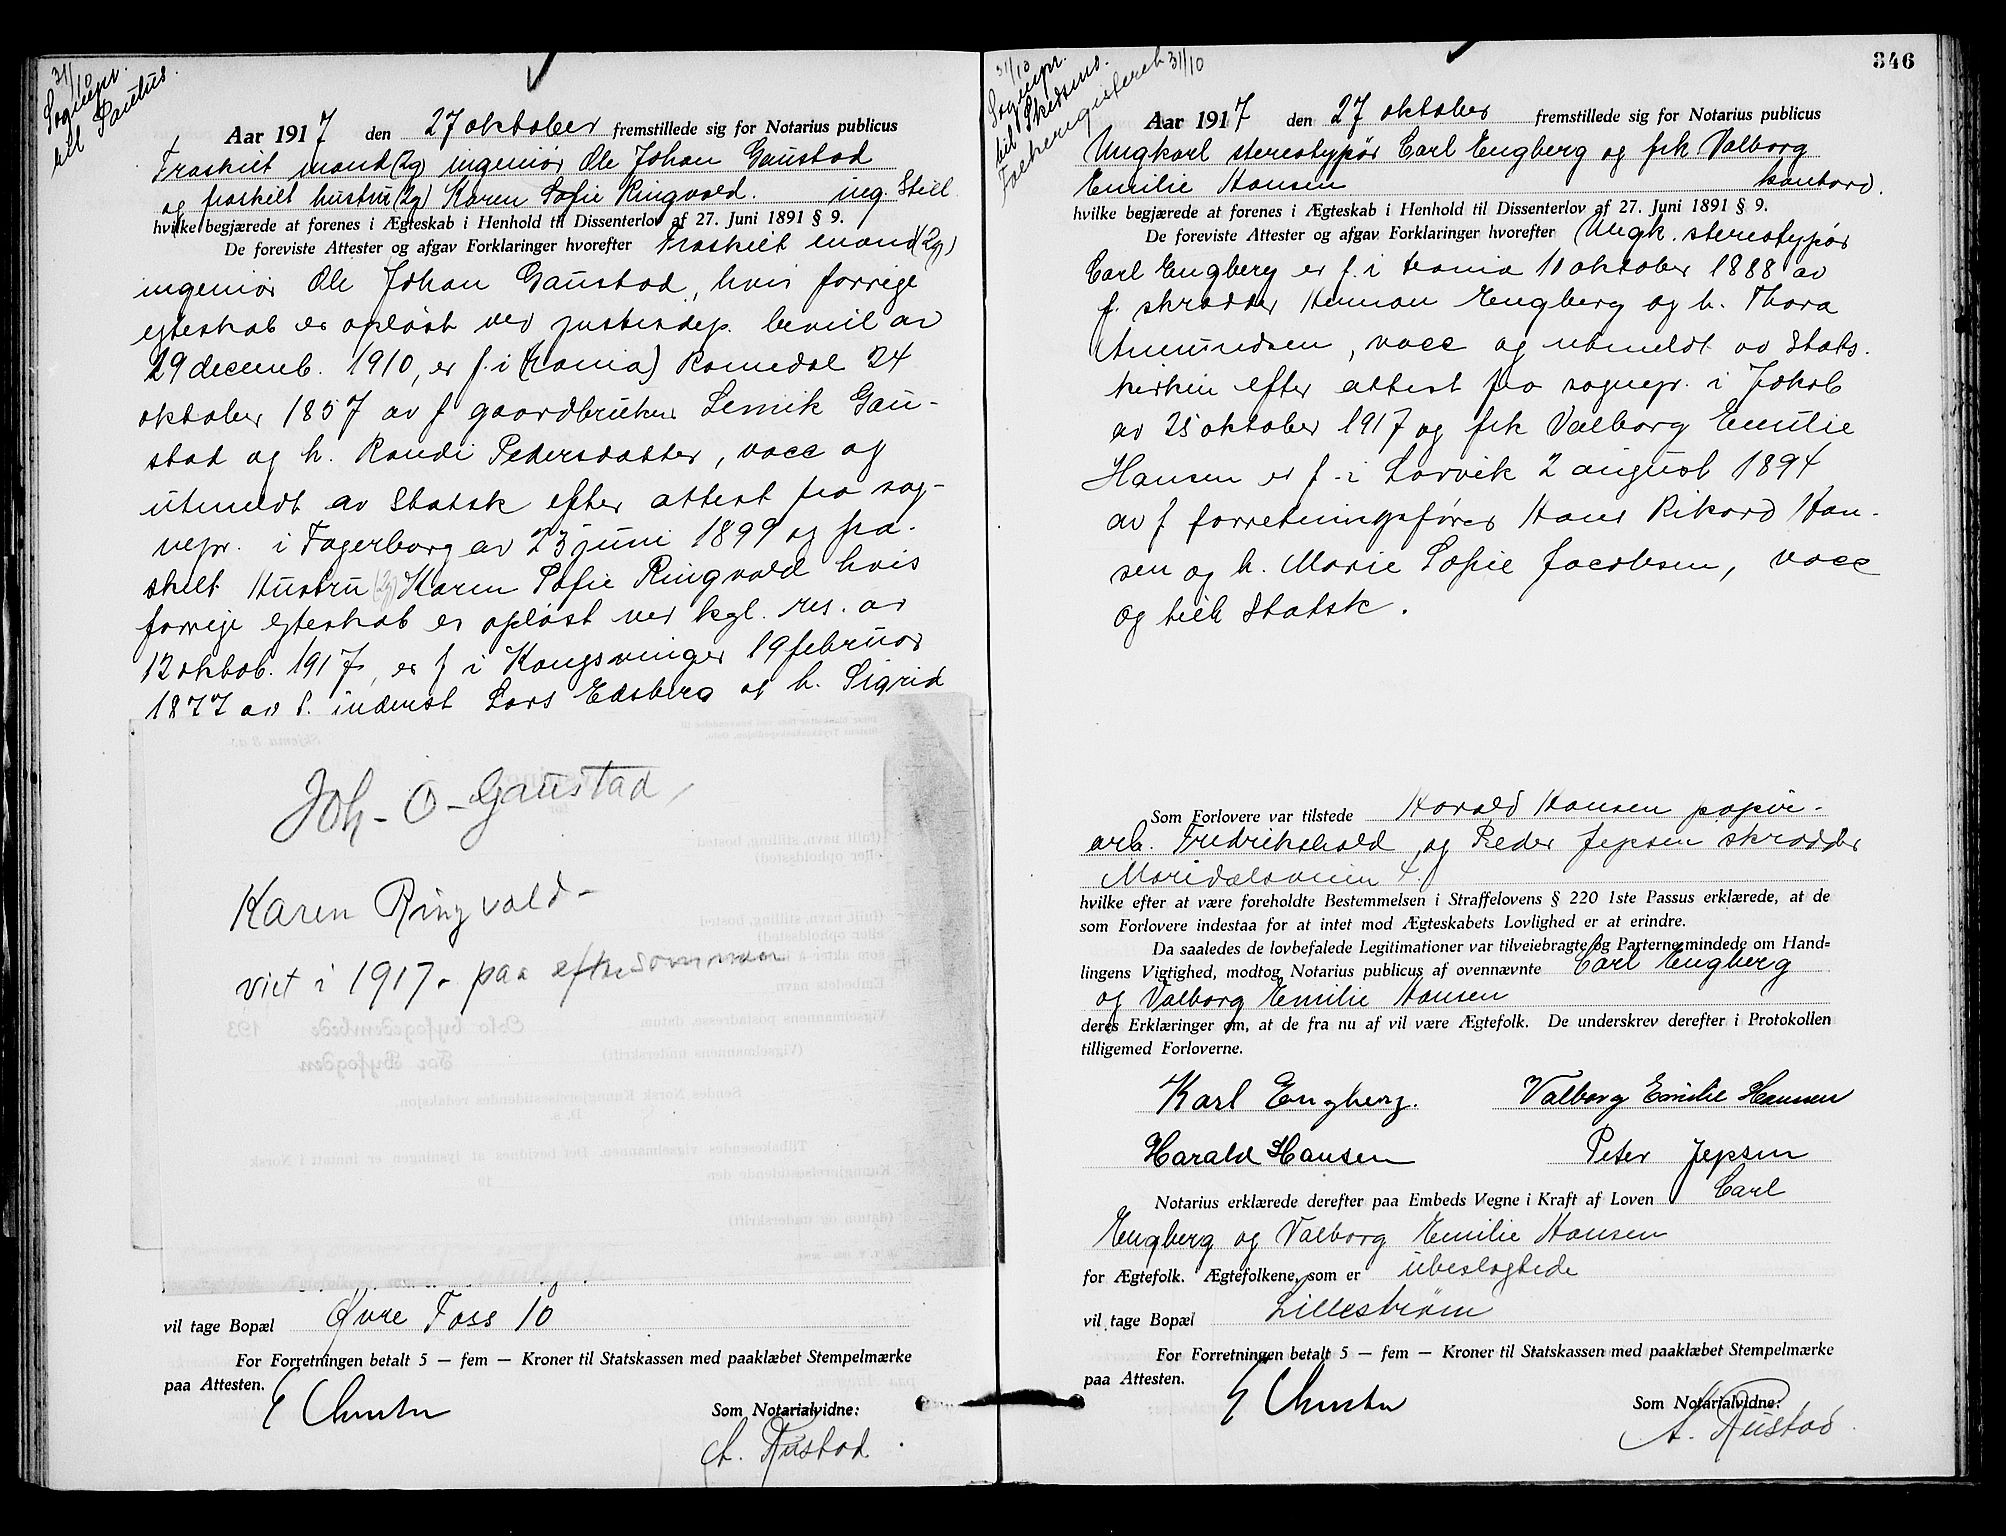 31/10
Sognepr.
til Paulus.
Aar 1917 den 27 oktober fremstillede sig for Notarius publicus
Fraskilt mand (2g) ingeniör Ole Johan Gaustad
og fraskilt hustru (2g) Karen Sofie Ringvold.
hvilke begjærede at forenes i Ægteskab i Henhold til Dissenterlov af 27. Juni 1891 § 9.
De foreviste Attester og afgav Forklaringer hvorefter Fraskilt mand (2g)
ingeniör Ole Johan Gaustad, hvis forrige
egteskab er opløst ved justisdep. bevill av
29 decemb. 1910, er f. i (Krania) Romedal 24
oktober 1857 av f gaardbruker Lemik Gau-
stad og h. Randi Pedersdatter, vacc og
utmeldt av Statsk efter attest fra sog-
nepr. i Fagerborg av 23 juni 1899 og fra-
skilt Hustru (2g) Karen Sofie Ringvold hvis
forrige egteskab er opløst ved kgl. res. av
12 oktob. 1917, er f i Kongsvinger 19 februar
1877 av f. inderst Lars Edsberg og h. Sigrid
Joh - O - Gaustad,
Karen Ringvold -
viet i 1917. paa eftersommeren
vil tage Bopæl Øvre Foss 10
For Forretningen betalt 5 — fem — Kroner til Statskassen med paaklæbet Stempelmærke
paa Attesten.
Som Notarialvidne:
A. Rustad
346
31/10
Sognepr.
til Skedsmo.
Folkeregisteret 31/10
Aar 1917 den 27 oktober fremstillede sig for Notarius publicus
Ungkarl stereotypör Carl Engberg og frk Valborg
Emilie Hansen
hvilke begjærede at forenes i Ægteskab i Henhold til Dissenterlov af 27. Juni 1891 § 9.
De foreviste Attester og afgav Forklaringer hvorefter Ungk. stereotypör
Carl Engberg er f. i Krania 10 oktober 1888 av
f. skrædder Herman Engberg og h. Thora
Amundsen, vacc og utmeldt av Stats.
kirken efter attest fra sognepr. i Jakob
av 25 oktober 1917 og frk Valborg Emilie
Hansen er f. i Larvik 2 august 1894
av f forretningsförer Hans Rikard Han-
sen og h. Marie Sofie Jacobsen, vacc
og tilh Statsk.
Som Forlovere var tilstede Harald Hansen papir-
arb. Fredrikshald og Peder Jepsen skrædder
Maridalsveien
hvilke efter at være foreholdte Bestemmelsen i Straffelovens § 220 1ste Passus erklærede, at de
som Forlovere indestaa for at intet mod Ægteskabets Lovlighed er at erindre.
Da saaledes de lovbefalede Legitimationer var tilveiebragte og Parterne mindede om Hand=
lingens Vigtighed, modtog Notarius publicus af ovennævnte Carl Engberg
og Valborg Emilie Hansen
deres Erklæringer om, at de fra nu af vil være Ægtefolk. De underskrev derefter i Protokollen
tilligemed Forloverne.
Karl Engberg. Valborg Emilie Hansen
Harald Hansen Peter Jepsen
Notarius erklærede derefter paa Embeds Vegne i Kraft af Loven Carl
Engberg og Valborg Emilie Hansen
for Ægtefolk. Ægtefolkene, som er ubeslægtede
vil tage Bopæl Lillestrøm
For Forretningen betalt 5 — fem — Kroner til Statskassen med paaklæbet Stempelmærke
paa Attesten.
Som Notarialvidne:
A. Rustad